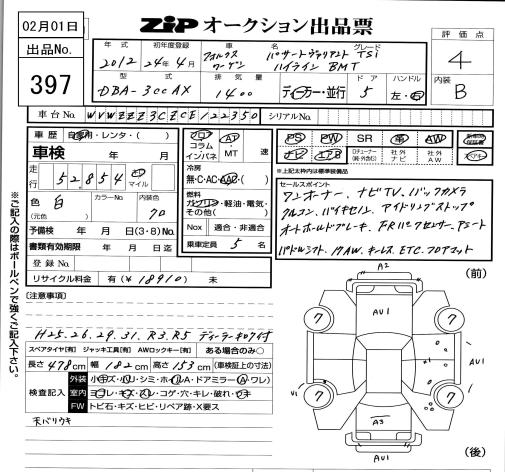 02月01日
ZIP オークション出品票
出品No.
397
年式 初年度登録 車名 グレード
2012 24年4月 フォルクスワーゲン パサートヴァリアント TSI ハイライン BMT
評価点
4
内装
B
型式 排気量 ドア ハンドル
DBA-3CCAX 1400 ディーラー・並行 5 左・右
車台No. WVWZZZ3CZCE122350 シリアルNo.
車歴 自家用・レンタ・( )
車検 年 月
走行 52,854 km マイル
色 白 カラーNo. 内装色
(元色) クロ
予備検 年 月 日(3・8)No.
書類有効期限 年 月 日迄
登録No.
リサイクル料金 有(¥18910) 未
フロア コラム インパネ AT・MT 速
冷房
無・C・AC・AAC・( )
燃料
ガソリン・軽油・電気・その他( )
Nox 適合・非適合
乗車定員 5 名
PS PW SR 革 AW
ナビ エアB Dチューナー(純・外含む) 社外ナビ 社外AW
※上記太枠内は標準装備品
セールスポイント
ワンオーナー、ナビTV、バックカメラ
クルコン、バイキセノン、アイドリングストップ
オートホールドブレーキ、FRパークセンサー、Pシート
パドルシフト、17AW、キーレス、ETC、フロアマット
[注意事項]
H25.26.29.31.R3.R5 ディーラー記ロク付
スペアタイヤ[有] ジャッキ工具[有] AWロックキー[有] ある場合のみ○
長さ 478cm 幅 182cm 高さ 153cm (車検証上の寸法)
検査記入
外装 小キズ・ハリ・シミ・ホイルA・ドアミラー(A・ワレ)
室内 ヨゴレ・キズ・スレ・コゲ・穴・キレ・破れ・ウキ
FW トビ石・キズ・ヒビ・リペア跡・X要ス
天バリウキ
※ご記入の際はボールペンで強くご記入下さい。
(前)
A2
AU1
7
7
AU1
V1
7
7
A3
AU1
(後)